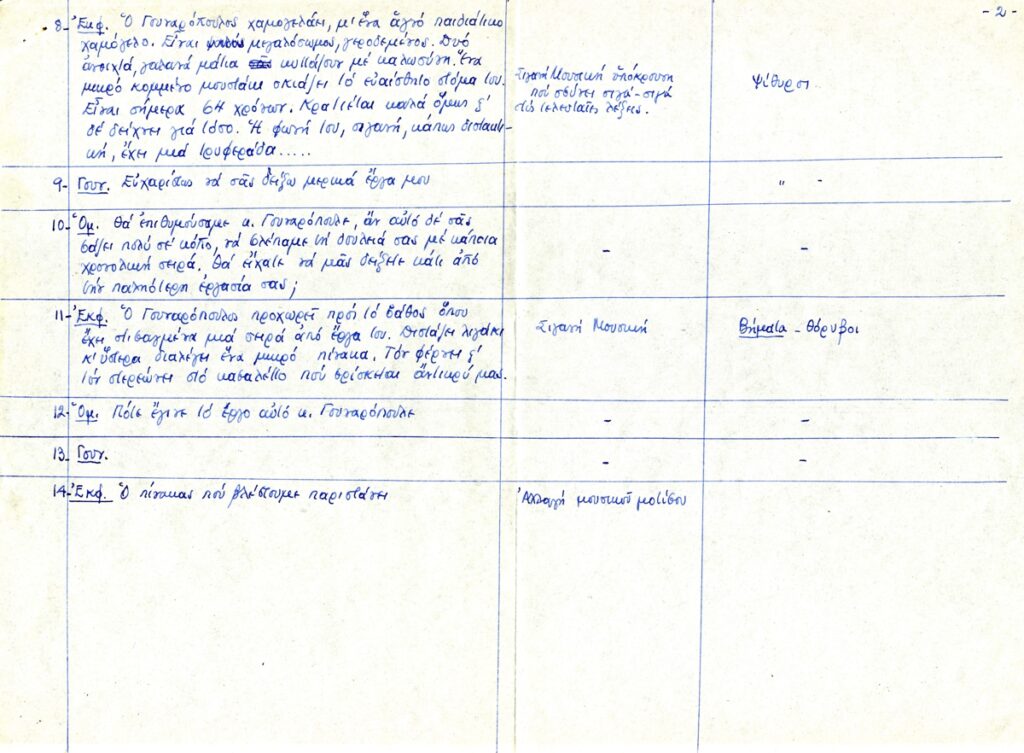 - 2 -
8- Ἐκφ. Ὁ Γουναρόπουλος χαμογελάει, μ' ἕνα ἁγνό παιδιάτικο
χαμόγελο. Εἶναι μεγαλόσωμος, γεροδεμένος. Δυό
ἀνοιχτά, γαλανά μάτια κυττάζουν μέ καλωσύνη. Ἕνα
μικρό κομμένο μουστάκι σκιάζει τό εὐαίσθητο στόμα του.
Εἶναι σήμερα 64 χρόνων. Κρατιέται καλά ὅμως κ'
δέ δείχνει γιά τόσο. Ἡ φωνή του, σιγανή, κάπως διστακτι-
κή, ἔχει μιά τρυφεράδα.....
Σιγανή Μουσική ὑπόκρουση
πού σβύνει σιγά-σιγά
στίς τελευταῖες λέξεις.
Ψίθυροι
9- Γουν. Εὐχαρίστως νά σᾶς δείξω μερικά ἔργα μου
" -
10- Ὁμ. Θά ἐπιθυμούσαμε κ. Γουναρόπουλε, ἄν αὐτό δέ σᾶς
βάζει πολύ σέ κόπο, νά βλέπαμε τή δουλειά σας μέ κάποια
χρονολική σειρά. Θά εἴχατε νά μᾶς δείξετε κάτι ἀπό
τήν παληότερη ἐργασία σας;
-
-
11- Ἐκφ. Ὁ Γουναρόπουλος προχωρεῖ πρός τό βάθος ὅπου
ἔχει στιβαγμένα μιά σειρά ἀπό ἔργα του. Διστάζει λιγάκι
κ' ὕστερα διαλέγει ἕνα μικρό πίνακα. Τόν φέρνει κ'
τόν στερεώνει στό καβαλέττο πού βρίσκεται ἀντικρύ μας.
Σιγανή Μουσική
Βήματα - Θόρυβοι
12- Ὁμ. Πότε ἔγινε τό ἔργο αὐτό κ. Γουναρόπουλε
-
-
13- Γουν.
-
-
14- Ἐκφ. Ὁ πίνακας πού βλέπουμε παριστάνει
Ἀλλαγή μουσικοῦ μοτίβου